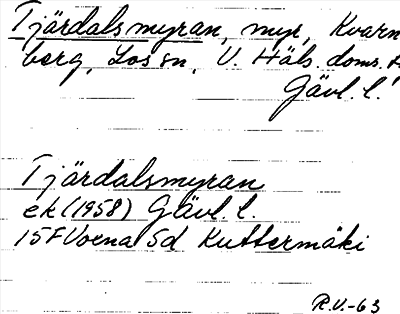 Tjärdalsmyran, myr, Kvarn
berg, Los sn, V. Häls. doms.
Gävl. l.
Tjärdalsmyran
ek (1958) Gävl. l.
15F Voxna 5d Kuttermäki
R.V.-63